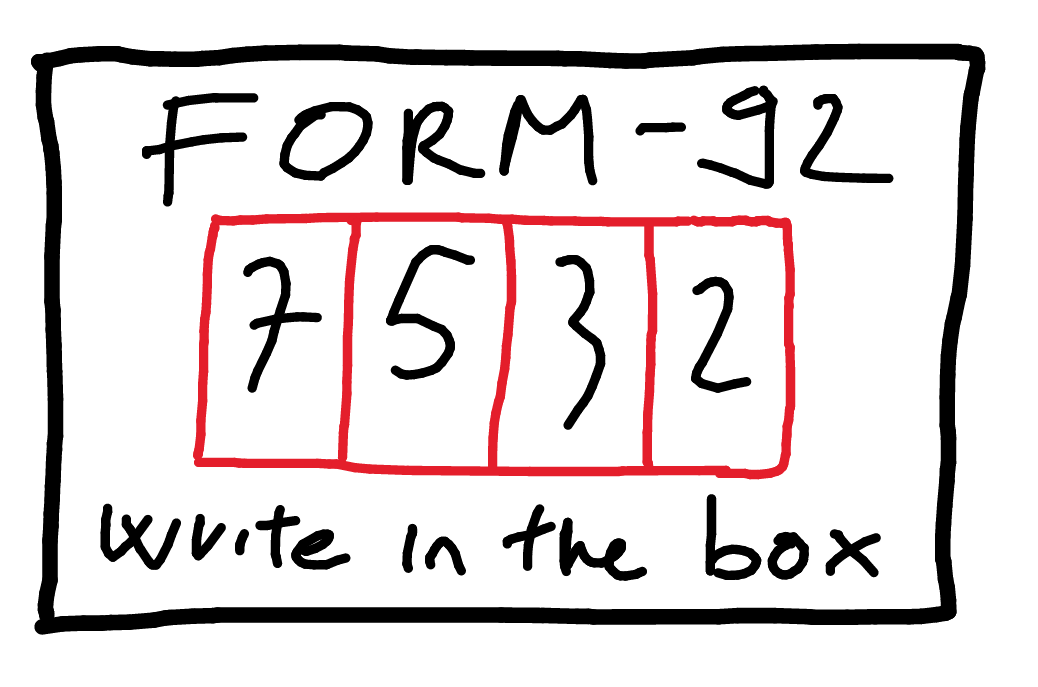 FORM-92
7532
write in the box